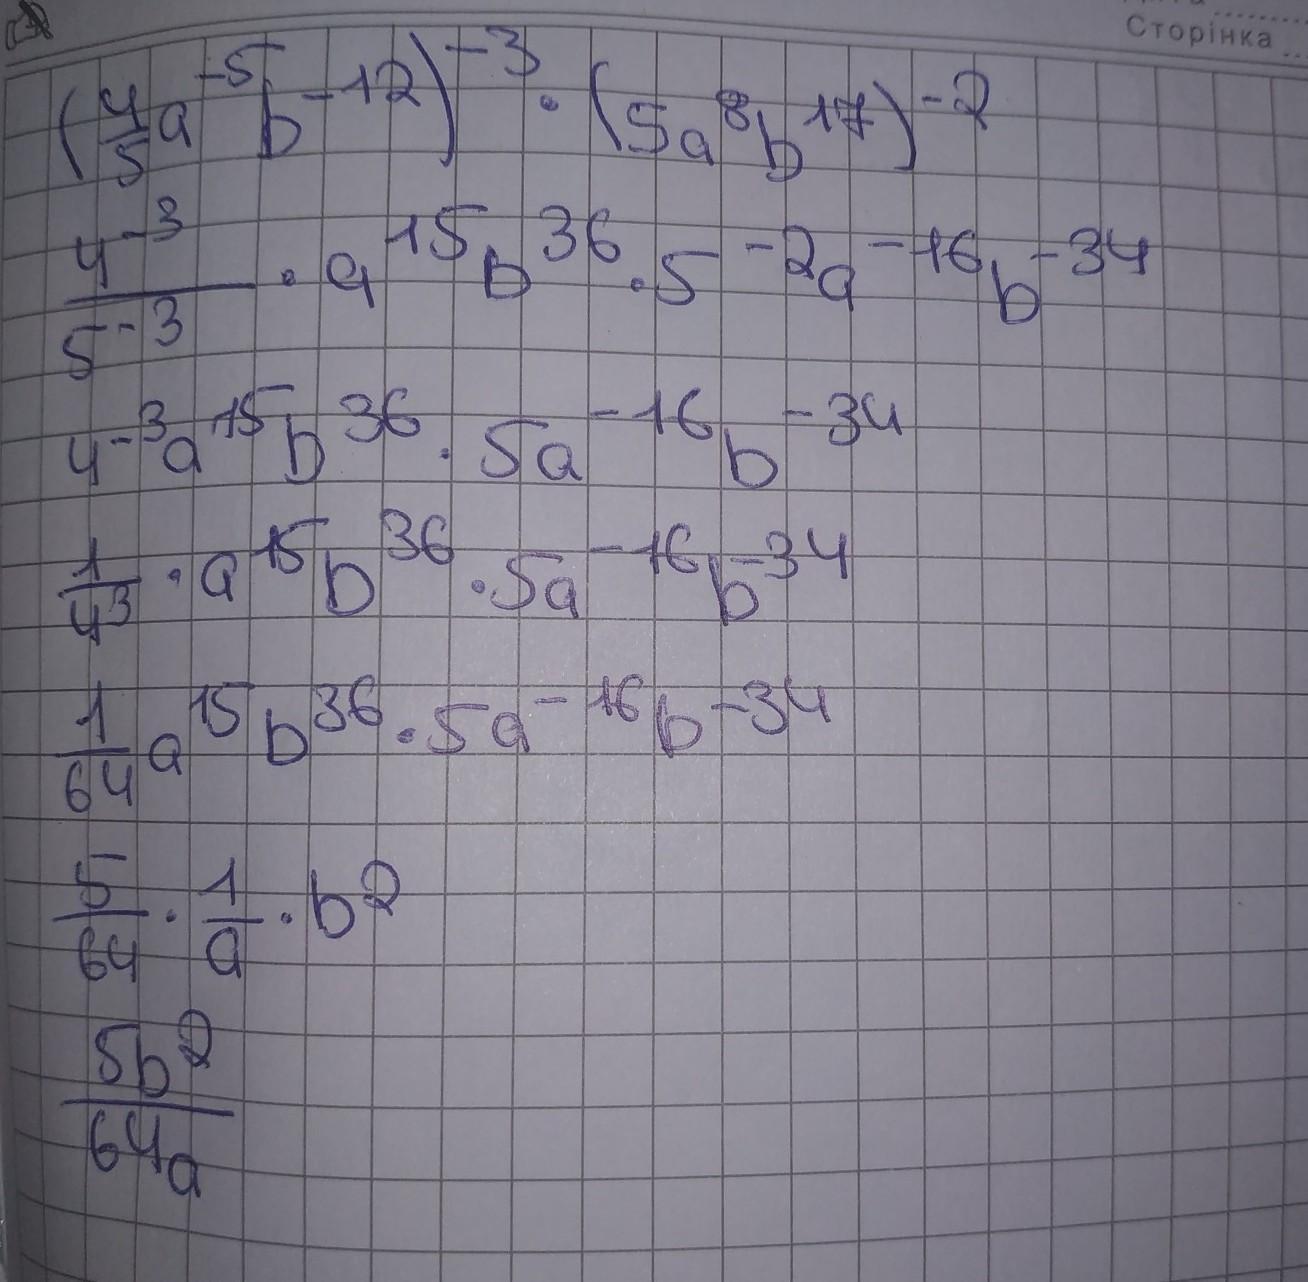 Сторінка
(4/5 a^-5 b^-12)^-3 · (5a^8 b^17)^-2
4^-3/5^-3 · a^15 b^36 · 5^-2 a^-16 b^-34
4^-3 a^15 b^36 · 5a^-16 b^-34
1/4^3 · a^15 b^36 · 5a^-16 b^-34
1/64 a^15 b^36 · 5a^-16 b^-34
5/64 · 1/a · b^2
5b^2/64a